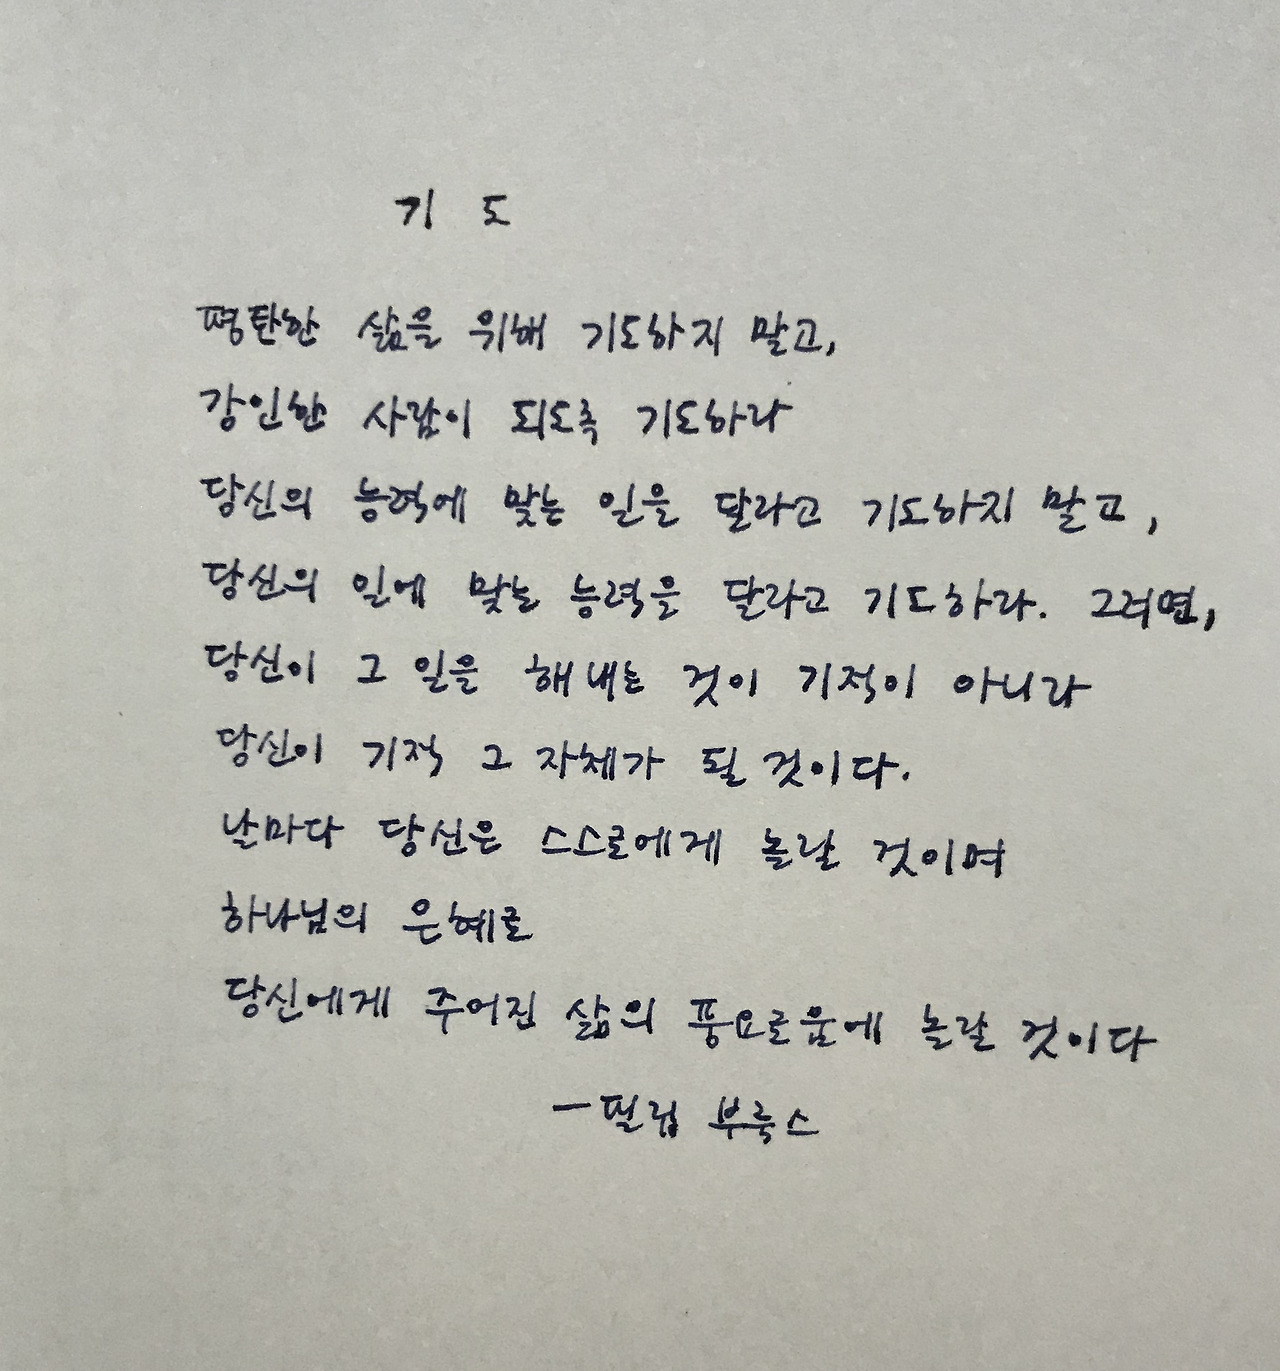 기 도
평탄한 삶을 위해 기도하지 말고,
강인한 사람이 되도록 기도하라
당신의 능력에 맞는 일을 달라고 기도하지 말고,
당신의 일에 맞는 능력을 달라고 기도하라. 그러면,
당신이 그 일을 해내는 것이 기적이 아니라
당신이 기적 그 자체가 될 것이다.
날마다 당신은 스스로에게 놀랄 것이며
하나님의 은혜로
당신에게 주어진 삶의 풍요로움에 놀랄 것이다
- 필립 부룩스